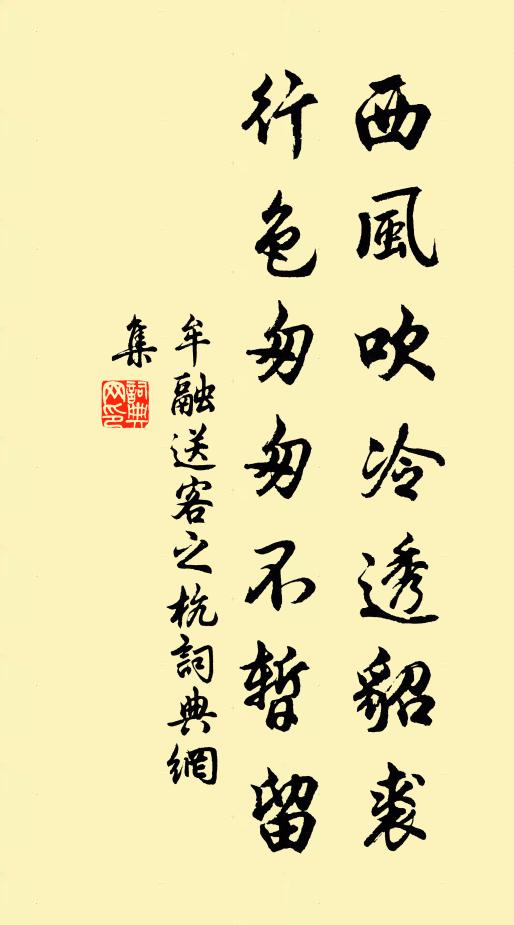 西風吹冷透貂裘
行色匆匆不暫留
牟融送客之杭詞典網
集
詞典
网印